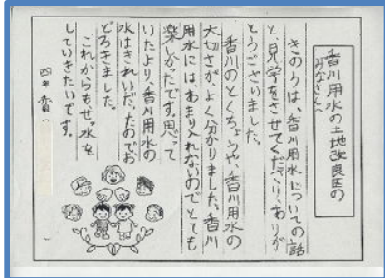 香川用水の土地改良区の
みなさんへ
きのうは、香川用水についての話
と、見学をさせてくださり、ありが
とうございました。
香川のとくちょうや、香川用水の
大切さが、よく分かりました。香川
用水にはあまり入れないのでとても
楽しかったです。思って
いたより、香川用水の
水はきれいだったのでお
どろきました。
これからも
水を
していきたいです。
四年